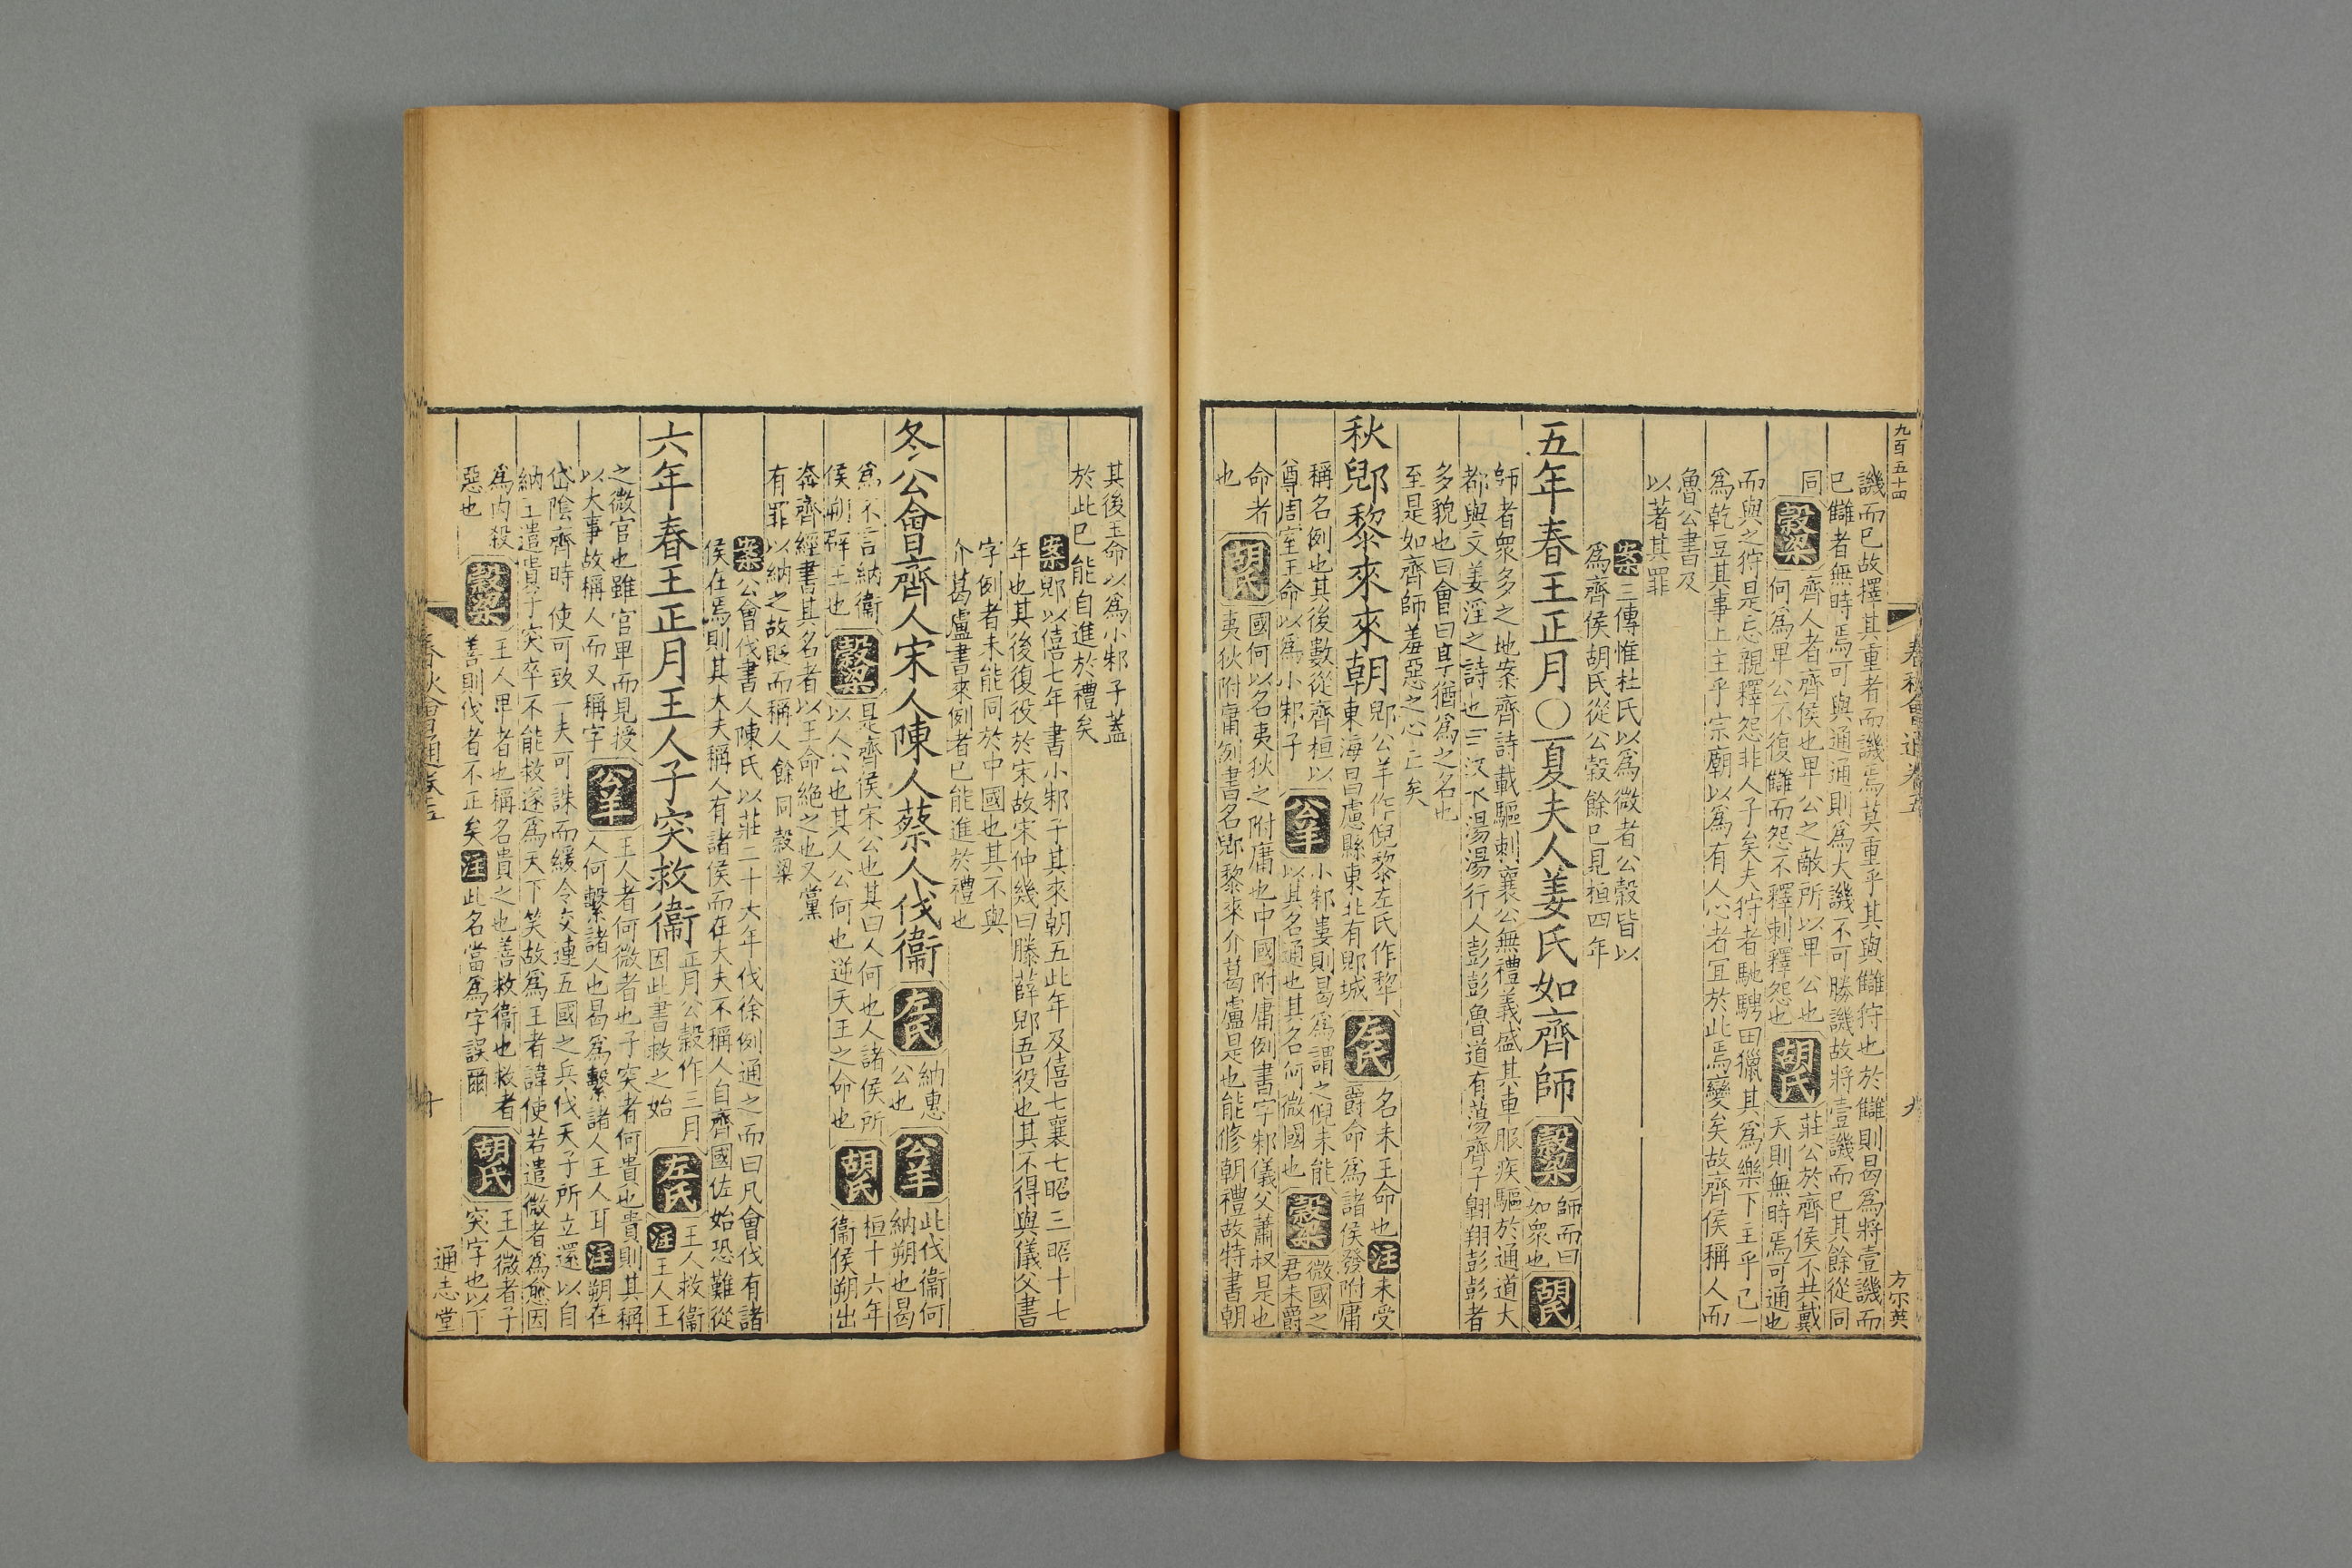 九百五十四
春秋會通卷五
九
方尔英
譏而巳故擇其重者而譏焉莫重乎其與讎狩也於讎則曷爲將壹譏而
巳讎者無時焉可與通通則爲大譏不可勝譏故將壹譏而巳其餘從同
同
穀梁
齊人者齊侯也卑公之敵所以卑公也
何爲卑公不復讎而怨不釋刺釋怨也
胡氏
莊公於齊侯不共戴
天則無時焉可通也
而與之狩是忘親釋怨非人子矣夫狩者馳騁田獵其爲樂下主乎己一
爲乾豆其事上主乎宗廟以爲有人心者宜於此焉變矣故齊侯稱人而
魯公書及
以著其罪
案
三傳惟杜氏以爲微者公穀皆以
爲齊侯胡氏從公穀餘巳見桓四年
五年春王正月〇夏夫人姜氏如齊師
穀梁
師而曰
如衆也
胡氏
師者衆多之地案齊詩載驅刺襄公無禮義盛其車服疾驅於通道大
都與文姜淫之詩也三汶水湯湯行人彭彭魯道有蕩齊子翱翔彭彭者
多貌也曰會曰享猶爲之名也
至是如齊師羞惡之心亡矣
秋郳黎來來朝
郳公羊作倪黎左氏作犂
東海昌慮縣東北有郳城
左氏
名未王命也
注
未受
爵命爲諸侯發附庸
稱名例也其後數從齊桓以
尊周室王命以爲小邾子
公羊
小邾婁則曷爲謂之倪未能
以其名通也其名何微國也
穀梁
微國之
君未爵
命者
也
胡氏
國何以名夷狄之附庸也中國附庸例書字邾儀父蕭叔是也
夷狄附庸例書名郳黎來介葛盧是也能修朝禮故特書朝
其後王命以爲小邾子蓋
於此已能自進於禮矣
案
郳以僖七年書小邾子其來朝五此年及僖七襄七昭三昭十七
年也其後復役於宋故宋仲幾曰滕薛郳吾役也其不得與儀父書
字例者未能同於中國也其不與
介葛盧書來例者已能進於禮也
冬公會齊人宋人陳人蔡人伐衞
左氏
納惠
公也
公羊
此伐衞何
納朔也曷
爲不言納衞
侯朔辟王也
穀梁
是齊侯宋公也其曰人何也人諸侯所
以人公也其人公何也逆天王之命也
胡氏
桓十六年
衞侯朔出
奔齊經書其名者以王命絶之也又黨
有罪以納之故貶而稱人餘同穀梁
案
公會伐書人陳氏以莊二十六年伐徐例通之而曰凡會伐有諸
侯在焉則其大夫稱人有諸侯而在大夫不稱人自齊國佐始恐難從
六年春王正月王人子突救衞
正月公穀作三月
因此書救之始
左氏
王人救衞
注
王人王
之微官也雖官卑而見授
以大事故稱人而又稱字
公羊
王人者何微者也子突者何貴也貴則其稱
人何繫諸人也曷爲繫諸人王人耳
注
朔在
岱陰齊時使可致一夫可誅而緩令交連五國之兵伐天子所立還以自
納王遣貴子突卒不能救遂爲天下笑故爲王者諱使若遣微者爲愈因
爲内殺
惡也
穀梁
王人卑者也稱名貴之也善救衞也救者
善則伐者不正矣
注
此名當爲字誤爾
胡氏
王人微者子
突字也以下
春秋會通卷五
十
通志堂